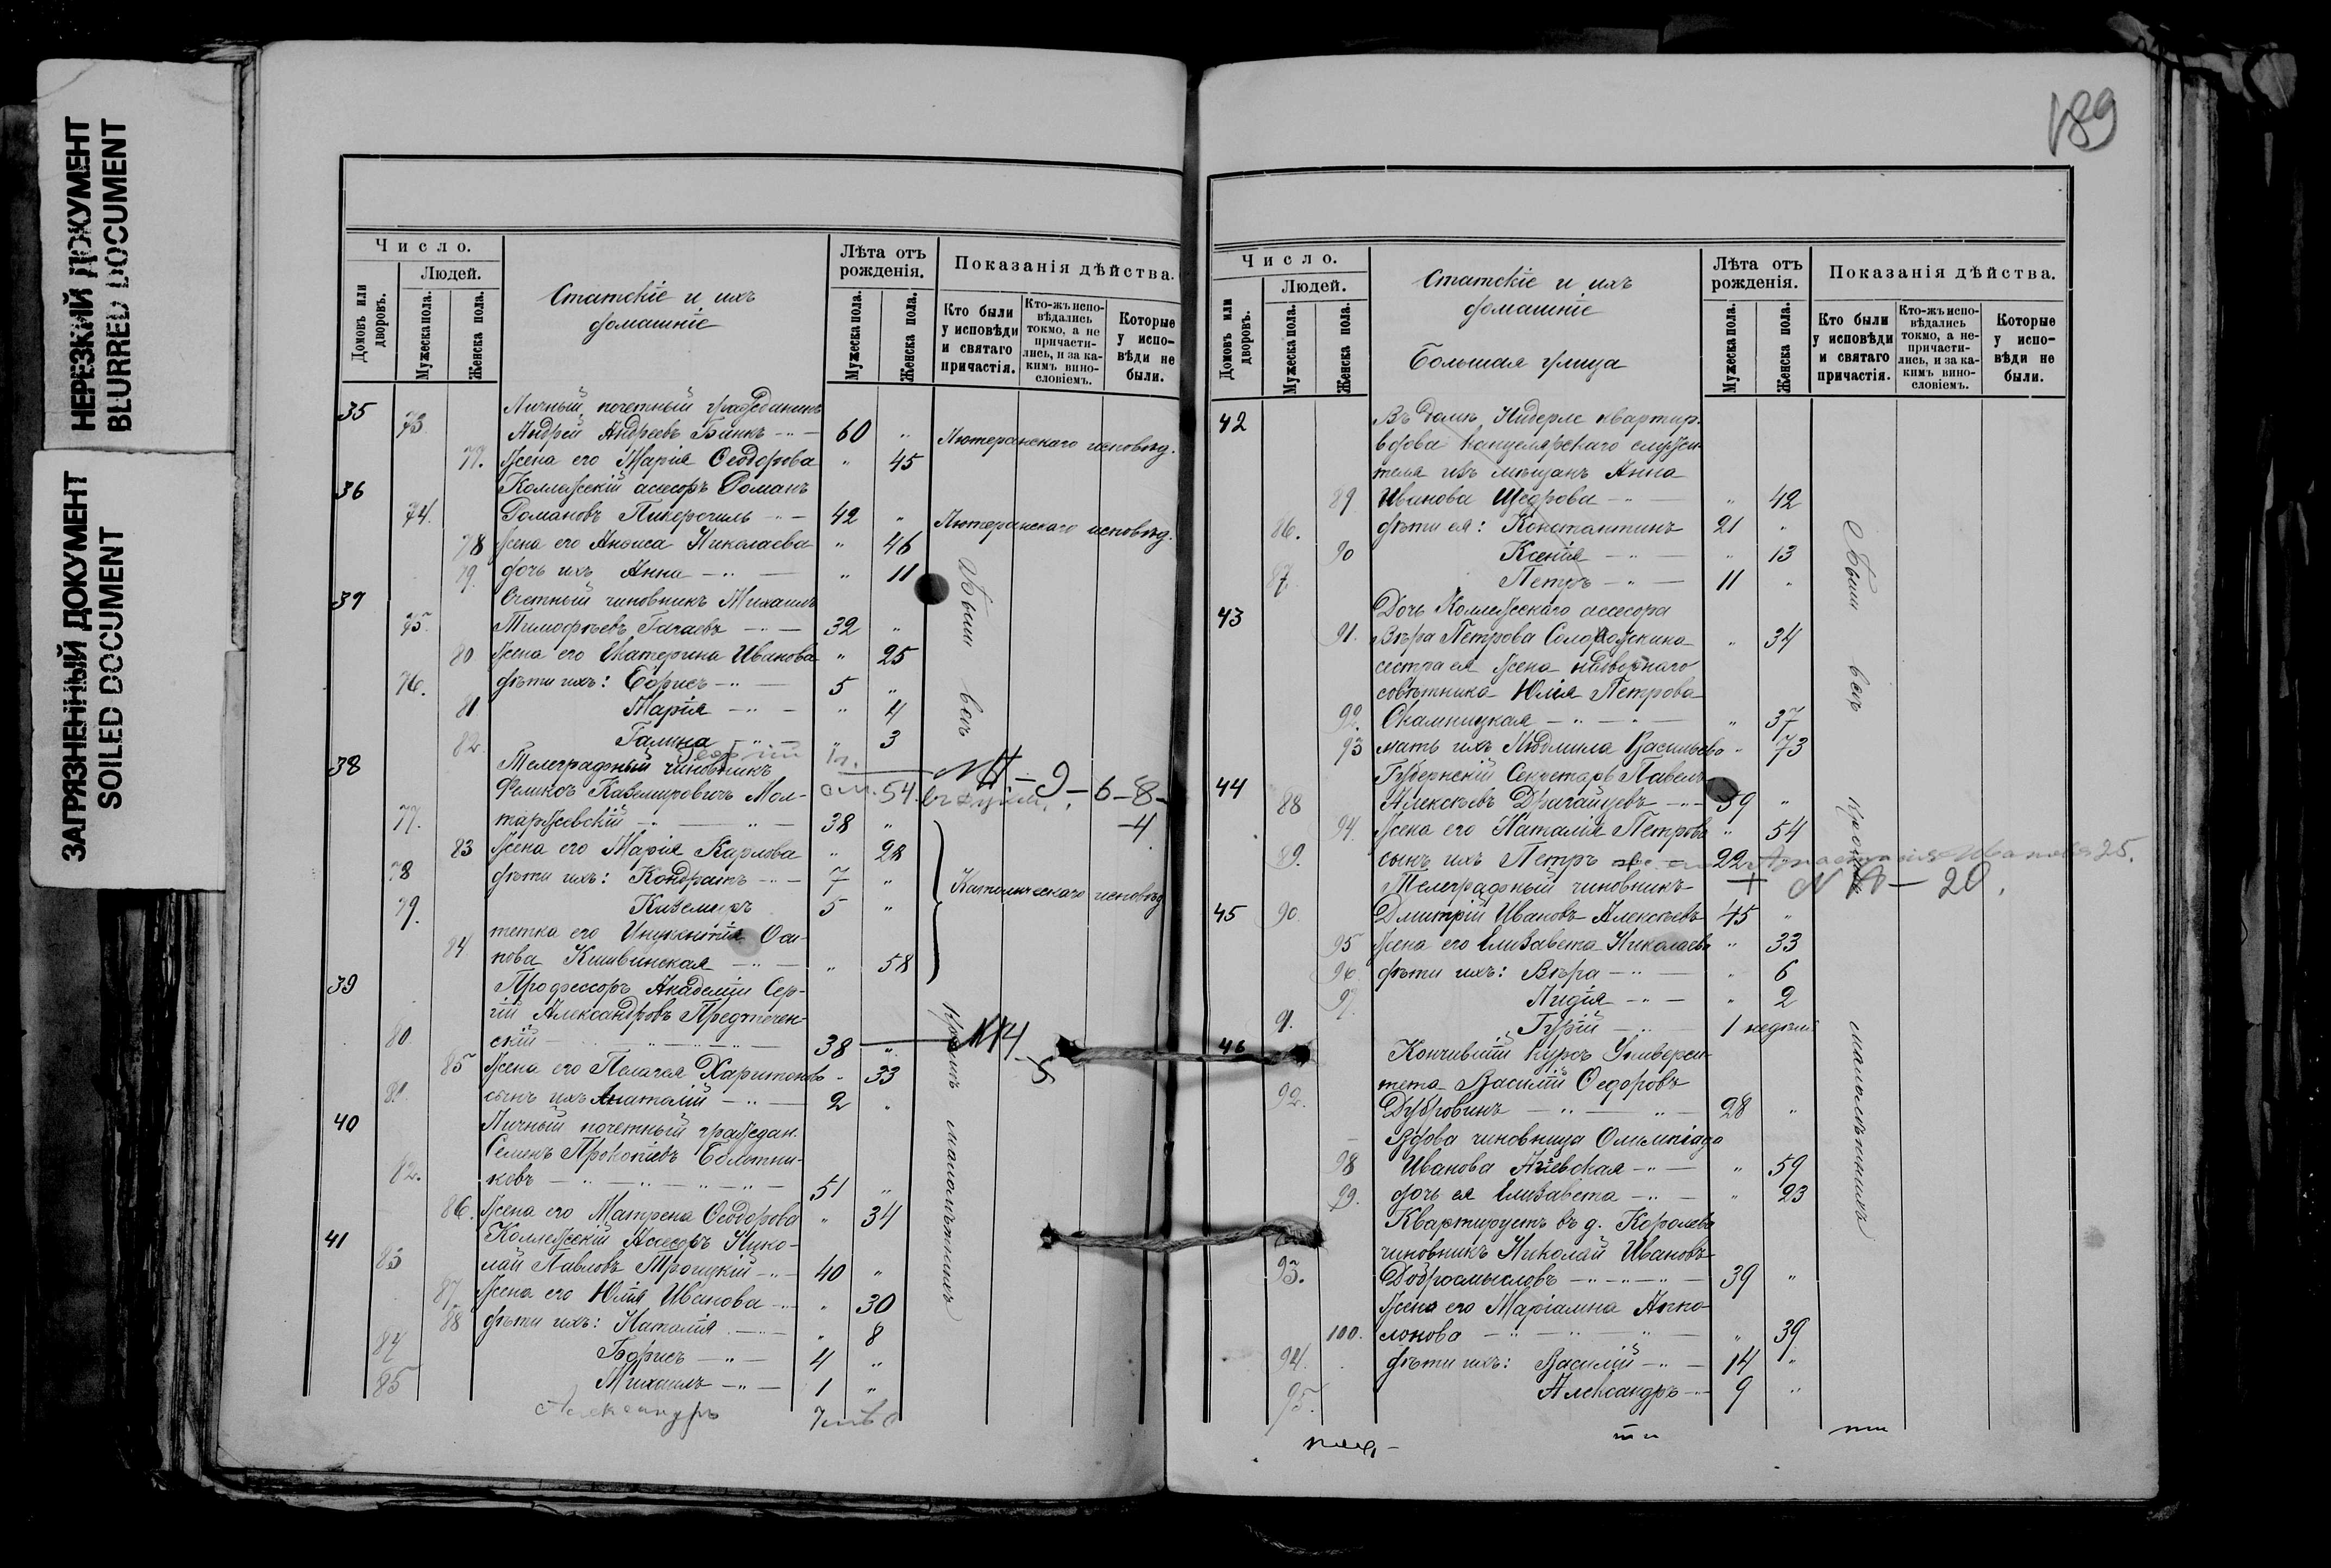 НЕРЕЗКИЙ ДОКУМЕНТ
BLURRED DOCUMENT
ЗАГРЯЗНЕННЫЙ ДОКУМЕНТ
SOILED DOCUMENT
Число.
Людей.
Домовъ или дворовъ.
Мужеска пола.
Женска пола.
Статскіе и ихъ
домашніе
Лѣта отъ рожденія.
Мужеска пола.
Женска пола.
Показанія дѣйства.
Кто были у исповѣди и святаго причастія.
Кто-жъ исповѣдались токмо, а не причастились, и за какимъ винословіемъ.
Которые у исповѣди не были.
35 Личный почетный гражданинъ
73 Андрей Андреевъ Бинкъ 60 "
77. Жена его Марія Ѳеодорова " 45
Лютеранскаго исповѣд.
36 Коллежскій асесоръ Романъ
74. Романовъ 42 "
78 Жена его Анфиса Николаева " 46
Лютеранскаго исповѣд.
79. дочь ихъ Анна " 11
37 Счетный чиновникъ Михаилъ
75. Тимофѣевъ Гачаевъ 32 "
80 Жена его Екатерина Иванова " 25
76. дѣти ихъ: Борисъ 5 "
81 Марія " 4
82 Галина " 3
38 Телеграфный чиновникъ
Феликсъ Казимировичъ Мол-
54. 9-6-8-
77. таржевскій 38 "
4
83 Жена его Марія Карлова " 28
78 дѣти ихъ: Кондратъ 7 "
79. Казимиръ 5 "
Католическаго исповѣд
тетка его Оси-
84 пова " 58
39 Профессоръ Академіи Сер-
гій Александровъ Предтечен-
80 скій 38 "
85 Жена его Пелагея Харитонова " 33
81. сынъ ихъ Анатолій 2 "
40 Личный почетный граждан.
Семенъ Прокопіевъ Болотни-
82. ковъ 51 "
86. Жена его Матрена Ѳеодорова " 34
41 Коллежскій Асесоръ Нико-
83 лай Павловъ Троицкій 40 "
87 Жена его Юлія Иванова " 30
88 дѣти ихъ: Наталія " 8
84 Борисъ 4 "
85 Михаилъ 1 "
Александръ
Были всѣ кромѣ малолѣтнихъ
189
Число.
Людей.
Домовъ или дворовъ.
Мужеска пола.
Женска пола.
Статскіе и ихъ
домашніе
Большая улица
Лѣта отъ рожденія.
Мужеска пола.
Женска пола.
Показанія дѣйства.
Кто были у исповѣди и святаго причастія.
Кто-жъ исповѣдались токмо, а не причастились, и за какимъ винословіемъ.
Которые у исповѣди не были.
42 Въ домѣ Нидерле квартир.
вдова канцелярскаго служи-
теля изъ мѣщанъ Анна
89 Иванова Щедрова " 42
86. дѣти ея: Константинъ 21 "
90 Ксенія " 13
87. Петръ 11 "
43 Дочь Коллежскаго асесора
91. Вѣра Петрова " 34
сестра ея жена надворнаго
совѣтника Юлія Петрова
92. " 37
93 мать ихъ Людмила Васильева " 73
44 Губернскій Секретарь Павелъ
88 Алексѣевъ 59 "
94. Жена его Наталія Петрова " 54
89. сынъ ихъ Петръ 22 25.
Телеграфный чиновникъ 20.
45 90 Дмитрій Ивановъ Алексѣевъ 45 "
95 Жена его Елизавета Николаева " 33
96. дѣти ихъ: Вѣра " 6
97. Лидія " 2
91. Гурій 1 недѣли
46 Кончившій курсъ Университ-
тета Василій Ѳедоровъ
92. Дубровинъ 28 "
Вдова чиновница Олимпіада
98 Иванова " 59
99. дочь ея Елизавета " 23
Квартируетъ въ д. Королева
чиновникъ Николай Ивановъ
93. Добросмысловъ 39 "
Жена его Маріамна Апол-
100. лонова " 39
94. дѣти ихъ: Василій 14 "
95. Александръ 9 "
Были всѣ кромѣ малолѣтнихъ